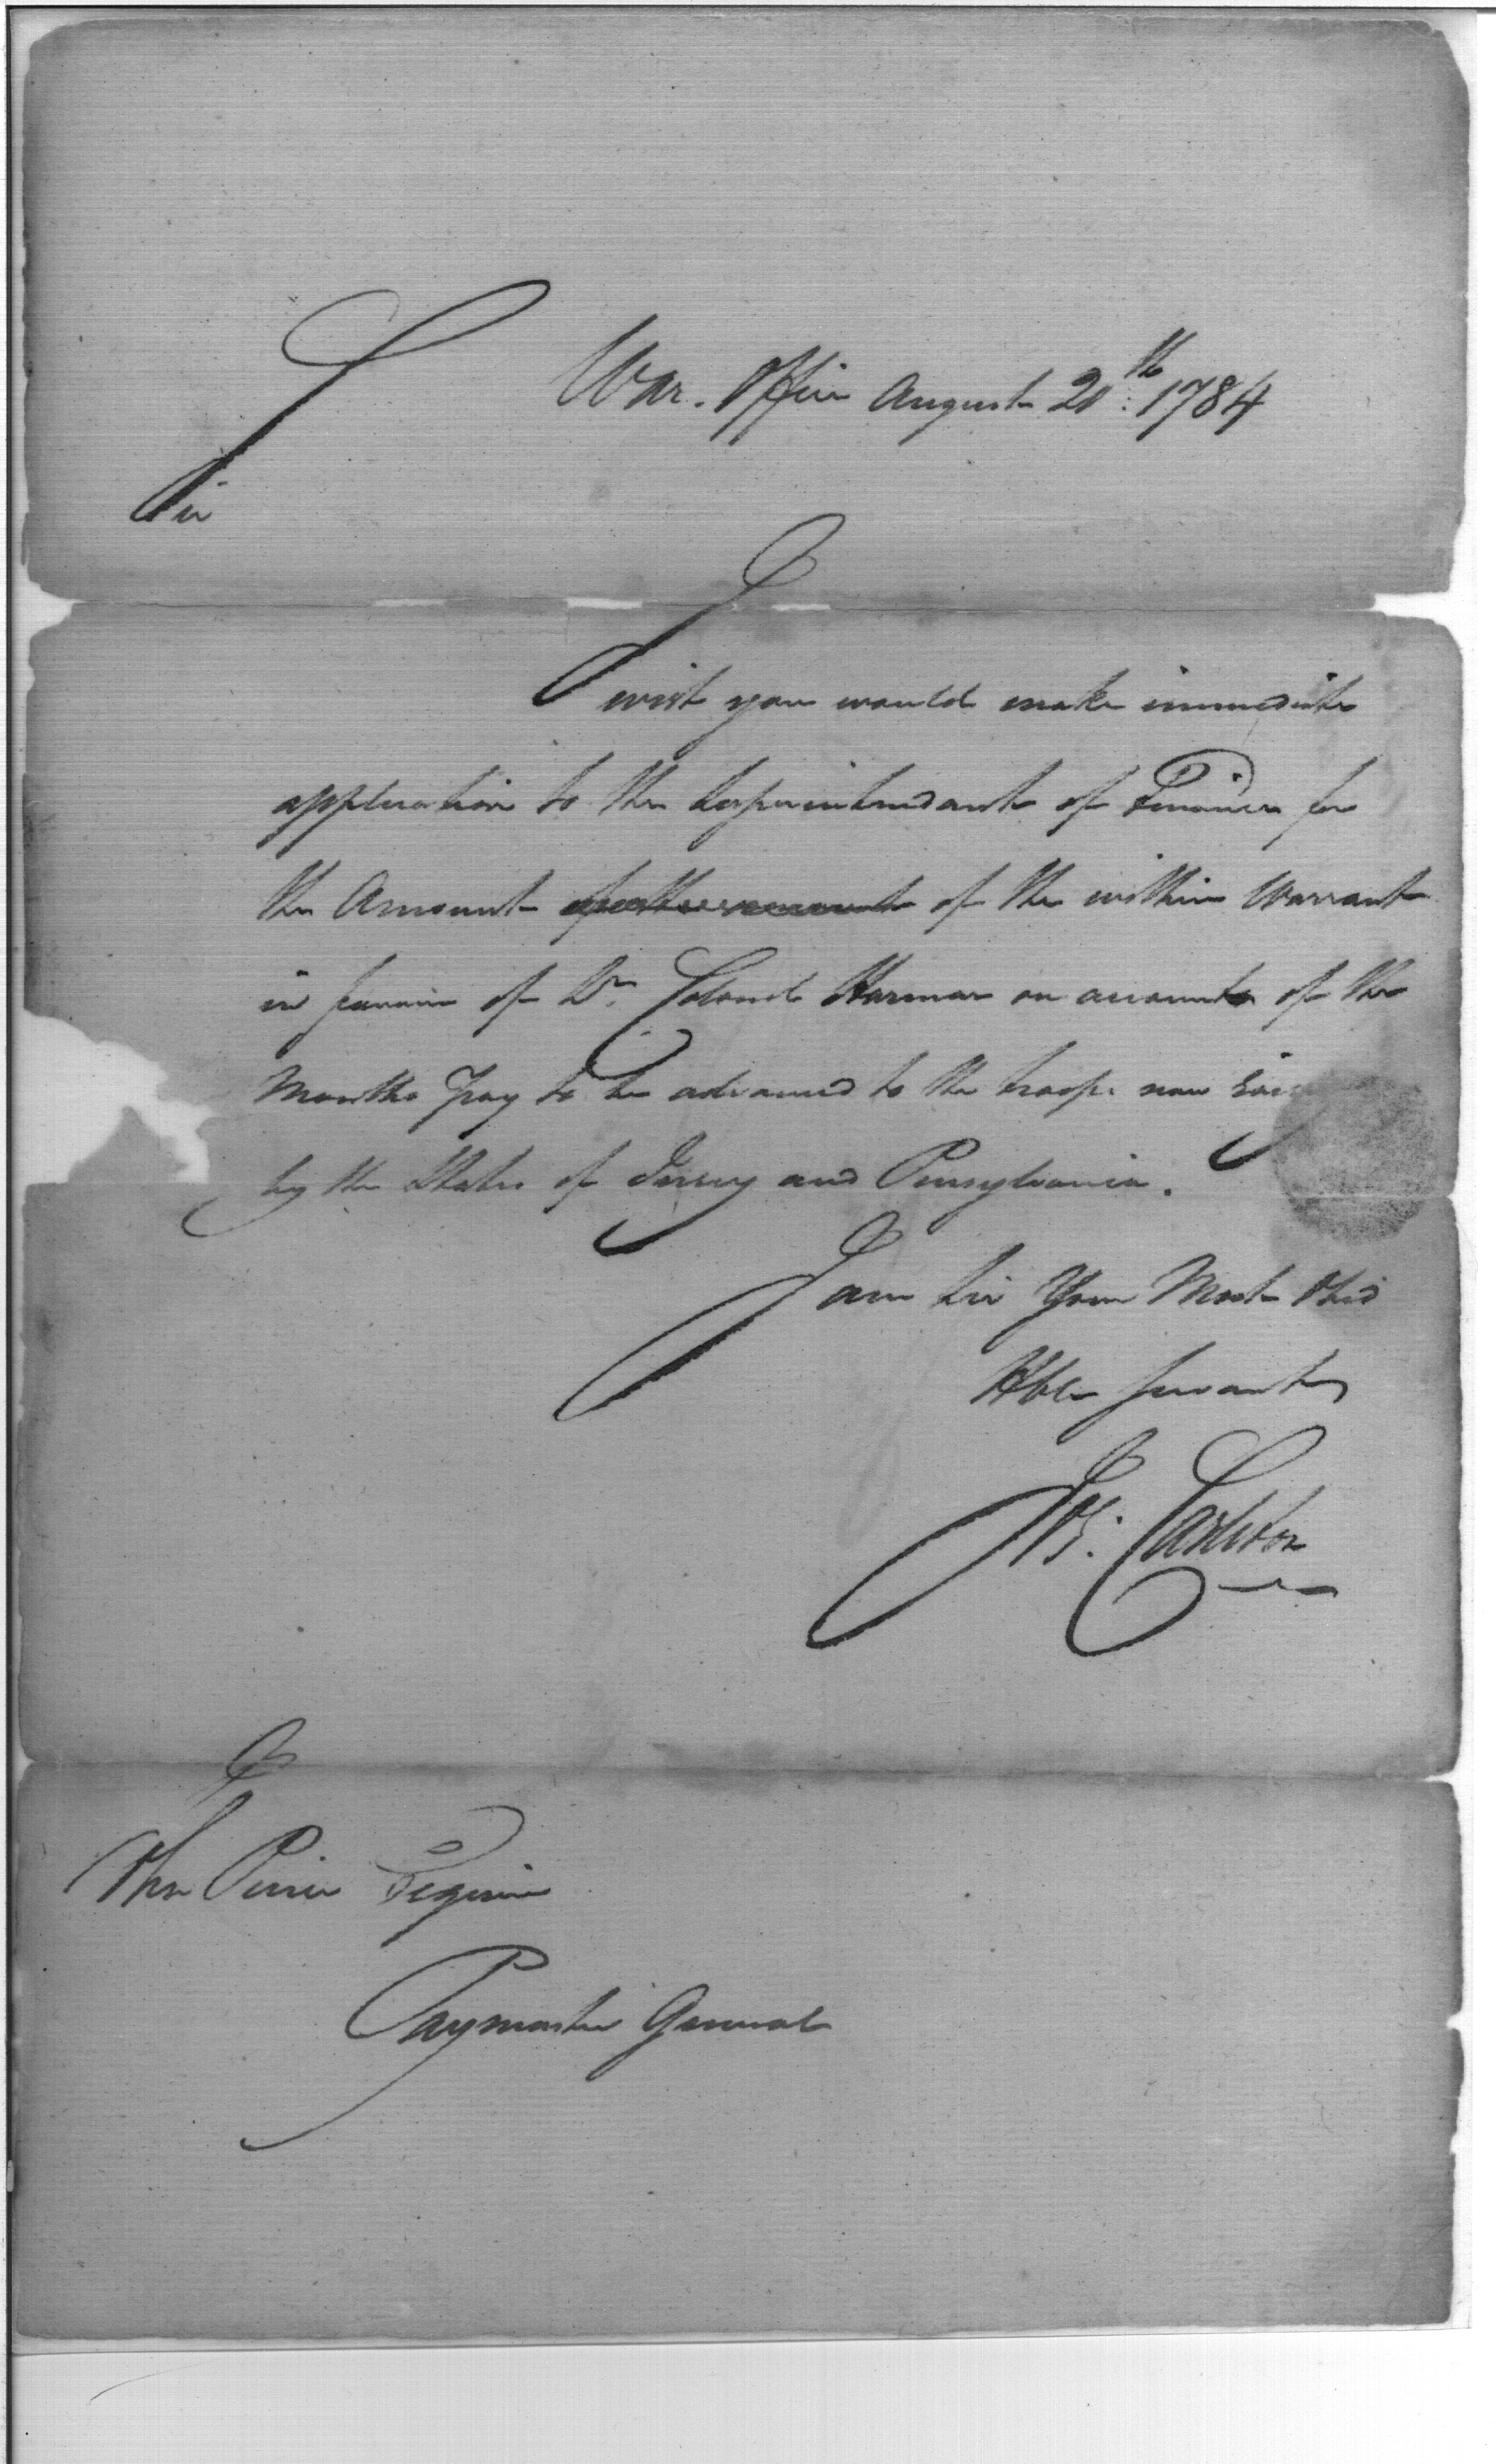 War Office August 20th: 1784
Sir
I wish you would make immediate
application to the Superintendant of Finance for
the Amount of the within Warrant
in favour of Lt Colonel Harmar on account of the
Months Pay to be advanced to the troops now
by the States of Jersey and Pensylvania.
I am Sir Your Most Obed
Hble Servant
Js: Carleton
John Pierce Esquire
Paymaster General